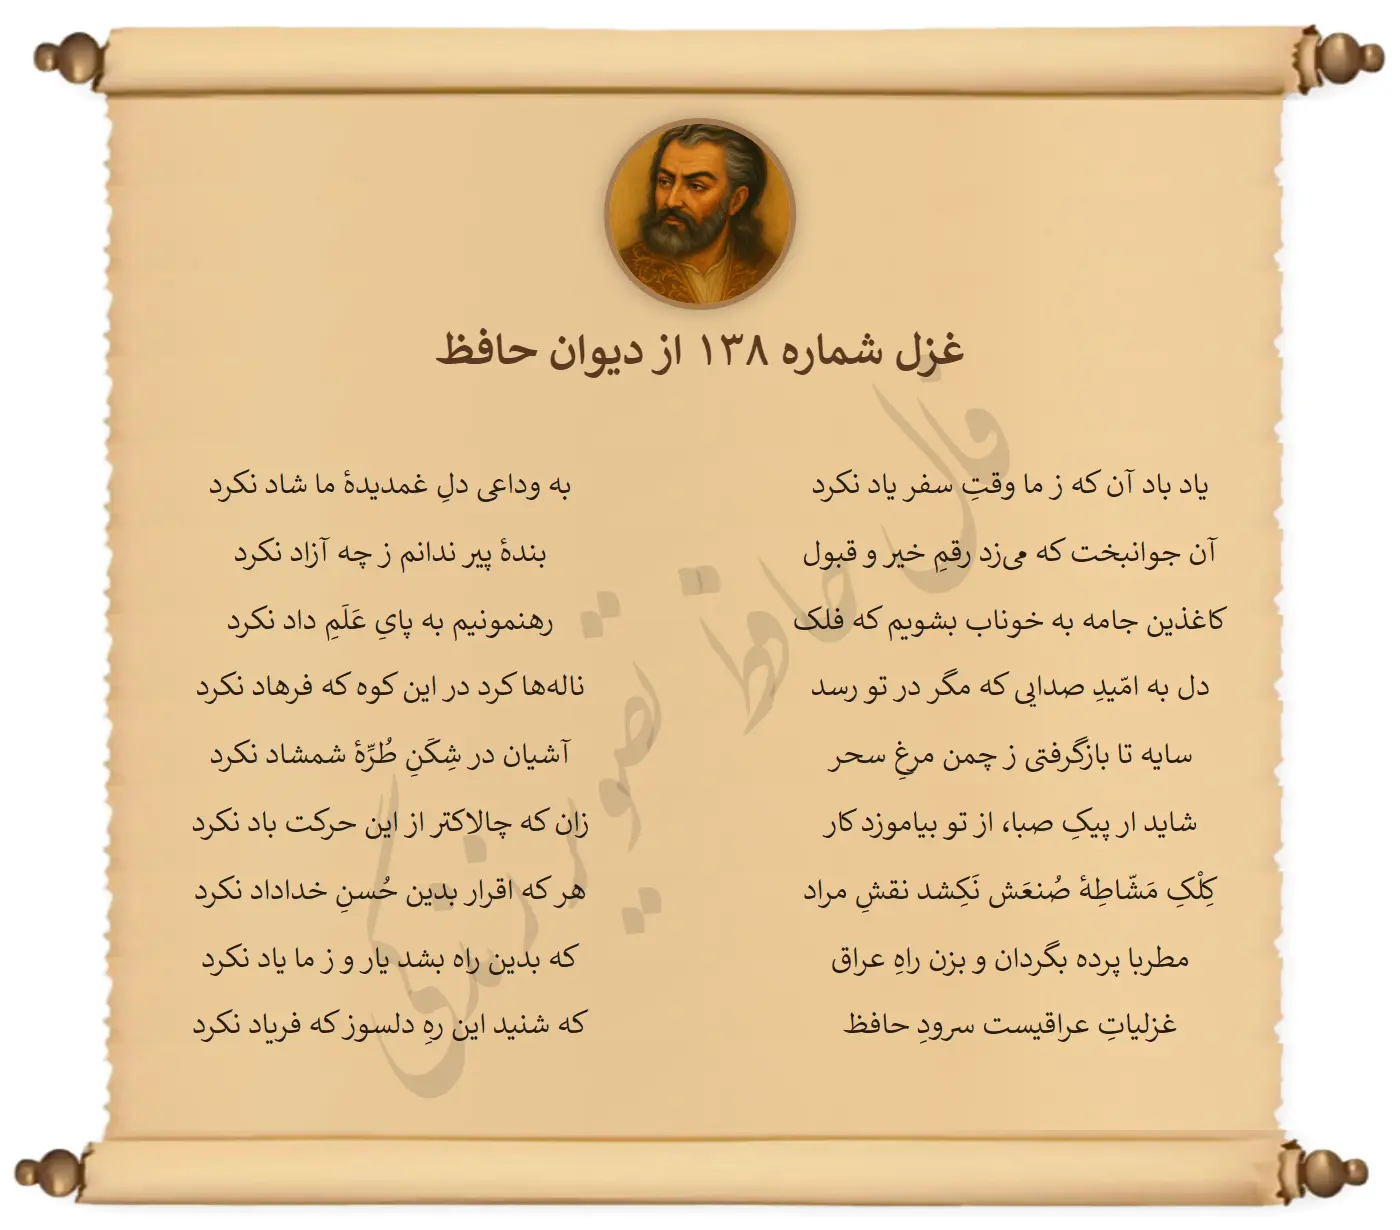 غزل شماره ۱۳۸ از دیوان حافظ
یاد باد آن که ز ما وقتِ سفر یاد نکرد
به وداعی دلِ غمدیدهٔ ما شاد نکرد
آن جوانبخت که می‌زد رقمِ خیر و قبول
بندهٔ پیر ندانم ز چه آزاد نکرد
کاغذین جامه به خوناب بشویم که فلک
رهنمونیم به پایِ عَلَمِ داد نکرد
دل به امّیدِ صدایی که مگر در تو رسد
ناله‌ها کرد در این کوه که فرهاد نکرد
سایه تا بازگرفتی ز چمن مرغِ سحر
آشیان در شِکَنِ طُرِّهٔ شمشاد نکرد
شاید ار پیکِ صبا، از تو بیاموزد کار
زان که چالاکتر از این حرکت باد نکرد
کِلْکِ مَشّاطِهٔ صُنعَش نَکِشد نقشِ مراد
هر که اقرار بدین حُسنِ خداداد نکرد
مطربا پرده بگردان و بزن راهِ عراق
که بدین راه بشد یار و ز ما یاد نکرد
غزلیاتِ عراقیست سرودِ حافظ
که شنید این رهِ دلسوز که فریاد نکرد
فال حافظ تصویر زندگی